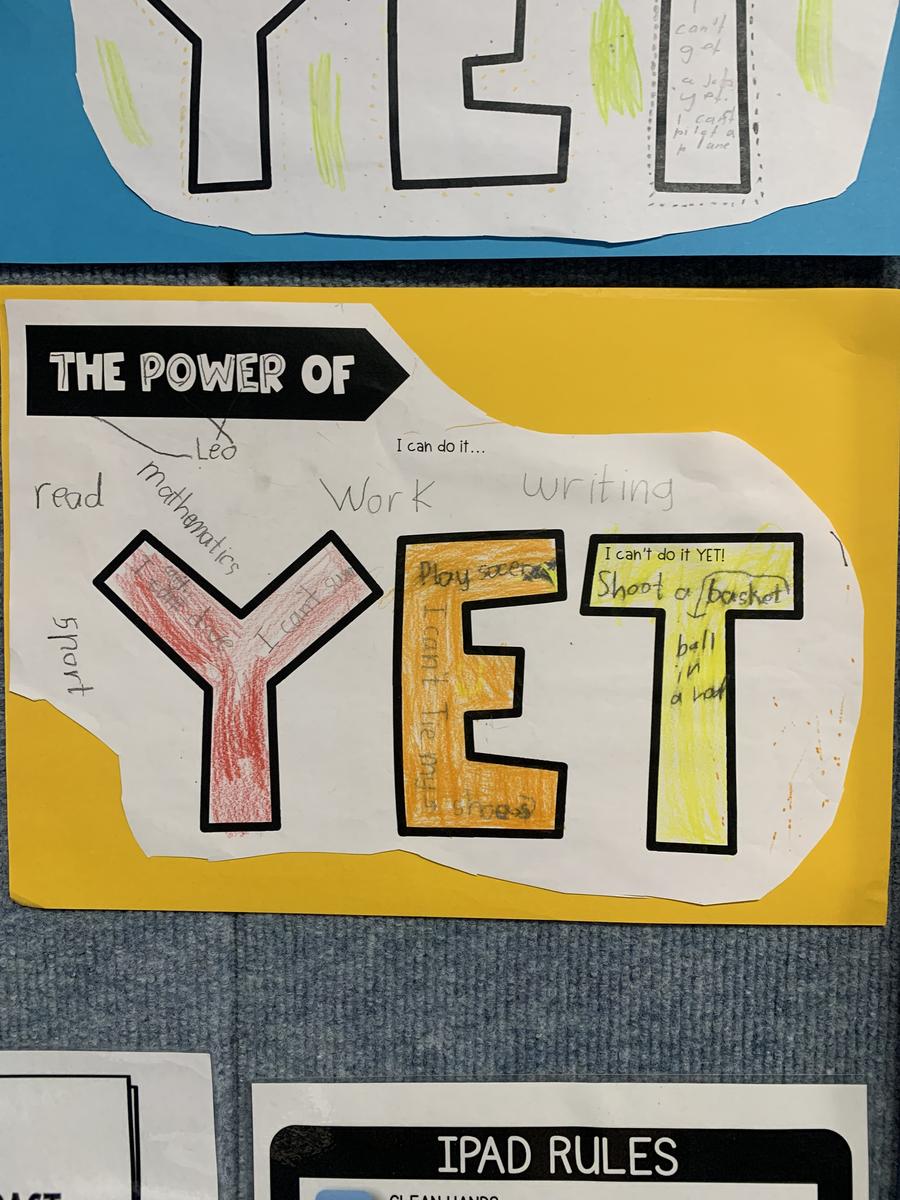 I
can't
get
a job
yet.
I can't
pilot a
plane
THE POWER OF
Leo
I can do it...
read
mathematics
Work
writing
I can't do it YET!
Play soccer
Shoot a basket
ball
in
a
I can't
I can't tie my
shoes
IPAD RULES
CLEAN HANDS